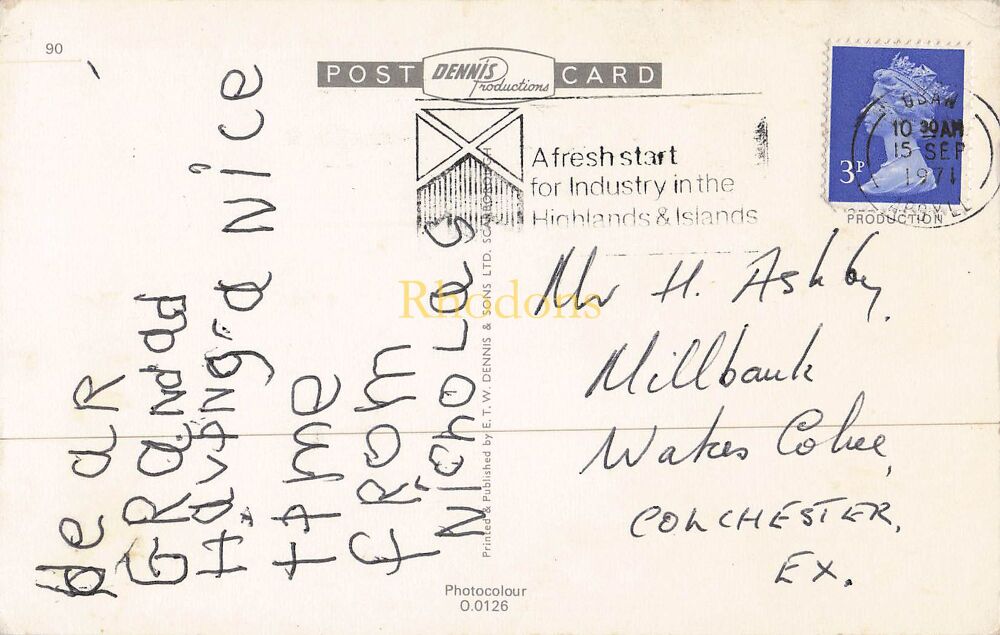 90
POST CARD
DENNIS
Productions
A fresh start
for Industry in the
Highlands & Islands
3P
OBAN
10 30 AM
15 SEP
1971
ARGYLL
PRODUCTION
dear
GRandad
Having a Nice
time
from
NichoLas
Rhodons
Printed & Published by E. T. W. DENNIS & SONS LTD. SCARBOROUGH
Mr H. Ashby,
Millbank
Wakes Colne,
COLCHESTER,
EX.
Photocolour
O.0126